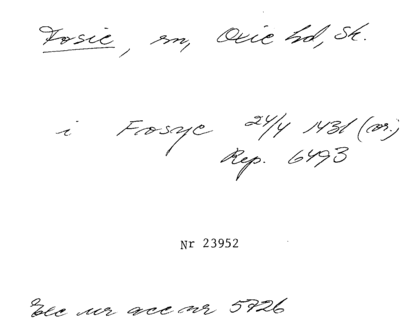 Fosie, sn, Oxie hd, Sk.
i Frosye 24/4 1431 (or.)
Rep. 6493
Nr 23952
Exc ur acc nr 5726